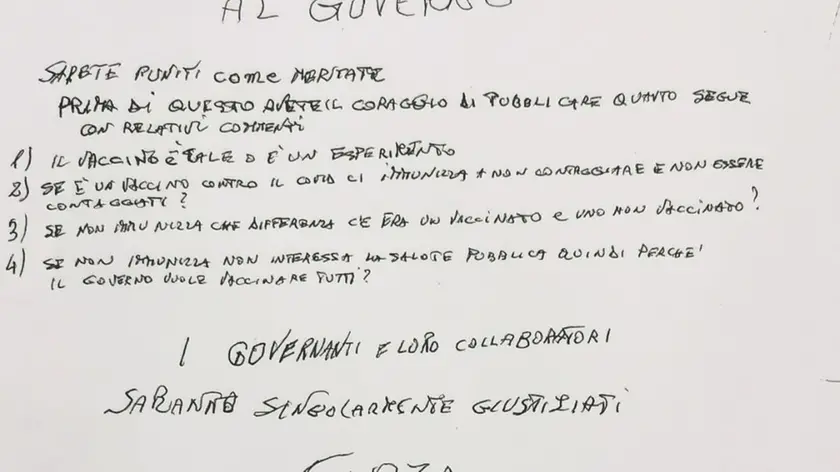 AL GOVERNO
SARETE PUNITI COME MERITATE
PRIMA DI QUESTO AVETE IL CORAGGIO DI PUBBLICARE QUANTO SEGUE
CON RELATIVI COMMENTI
1) IL VACCINO È TALE O È UN ESPERIMENTO
2) SE È UN VACCINO CONTRO IL COVID CI IMMUNIZZA A NON CONTAGGIARE E NON ESSERE
CONTAGGIATI?
3) SE NON IMMUNIZZA CHE DIFFERENZA C'E ERA UN VACCINATO E UNO NON VACCINATO?
4) SE NON IMMUNIZZA NON INTERESSA LA SALUTE PUBBLICA QUINDI PERCHE'
IL GOVERNO VUOLE VACCINARE TUTTI?
I GOVERNANTI E LORO COLLABORATORI
SARANNO SINGOLARMENTE GIUSTIZIATI